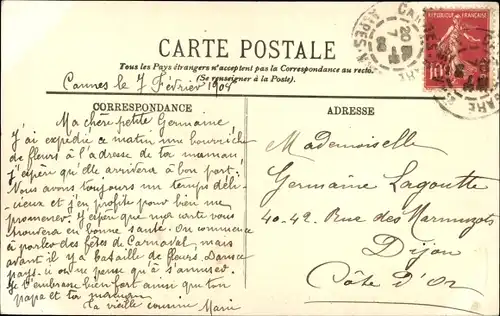 CARTE POSTALE
Tous les Pays étrangers n'acceptent pas la Correspondance au recto.
(Se renseigner à la Poste).
Cannes le 7 Février 1908
CORRESPONDANCE
Ma chère petite Germaine
J'ai expédié ce matin une bourriche
de fleurs à l'adresse de ta maman
j'espère qu'elle arrivera à bon port.
Nous avons toujours un temps déli-
cieux et j'en profite pour bien me
promener. J'espère que ma carte vous
trouvera en bonne santé. On commence
à parler des fêtes de Carnaval, mais
avant il y a bataille de fleurs. Dans ce
pays-ci on ne pense qu'à s'amuser.
Je t'embrasse bien fort ainsi que ton
papa et ta maman
Ta vieille cousine Marie
ADRESSE
Mademoiselle
Germaine Lagoutte
40-42 Rue des Marmuzots
Dijon
Côte d'Or
RÉPUBLIQUE FRANÇAISE
10
CANNES
20
7
08